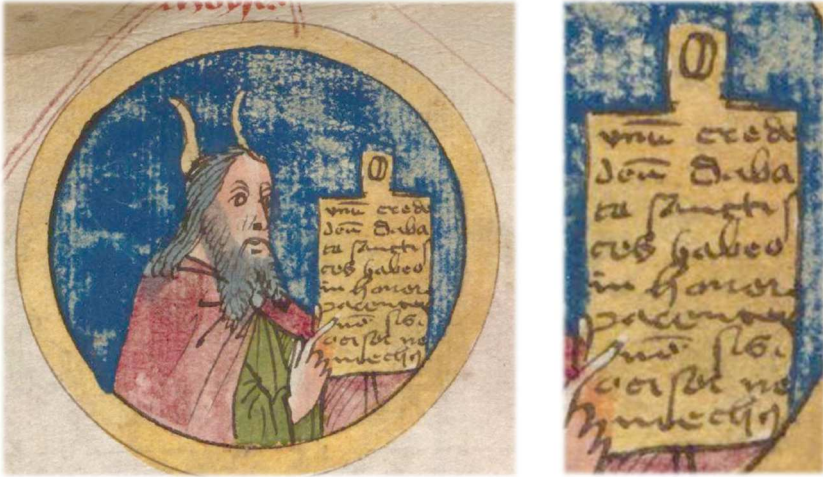 vnū crede
deū Saba
ta sanctif
ces habeo
in honore
parentes
nō sis
ocisor ne
mechꝰ
vnū crede
deū Saba
ta sanctif
ces habeo
in honore
parentes
nō sis
ocisor ne
mechꝰ